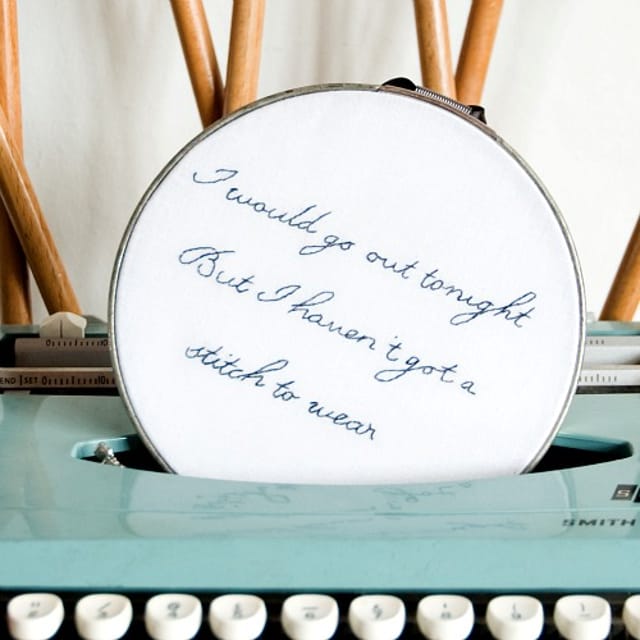 I would go out tonight
But I haven't got a
stitch to wear
END SET
SMITH